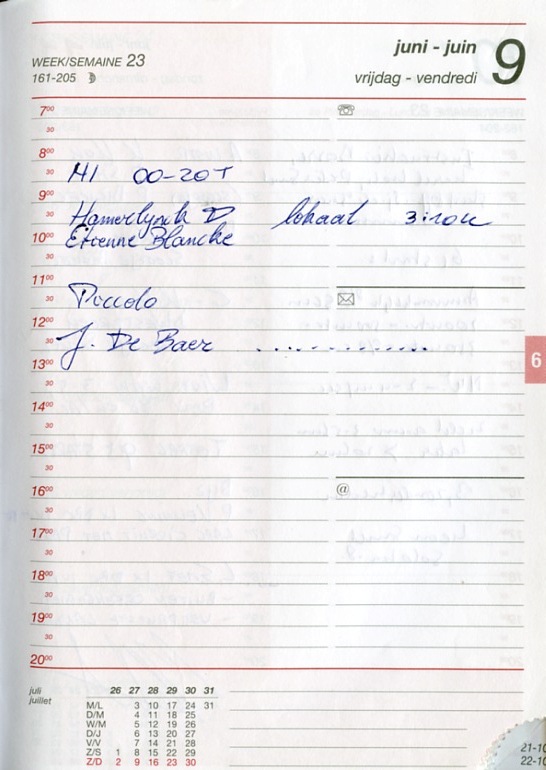 WEEK/SEMAINE 23
161-205
juni - juin
vrijdag - vendredi
9
7⁰⁰
30
8⁰⁰
30
HI 00-20T
9⁰⁰
30
Hamerlynck D lokaal
10⁰⁰
Etienne Blancke
30
11⁰⁰
30
Piccolo
12⁰⁰
30
J. De Baer ................
13⁰⁰
30
14⁰⁰
30
15⁰⁰
30
16⁰⁰
@
30
17⁰⁰
30
18⁰⁰
30
19⁰⁰
30
20⁰⁰
6
juli
juillet
26 27 28 29 30 31
M/L 3 10 17 24 31
D/M 4 11 18 25
W/M 5 12 19 26
D/J 6 13 20 27
V/V 7 14 21 28
Z/S 1 8 15 22 29
Z/D 2 9 16 23 30
21-10
22-10